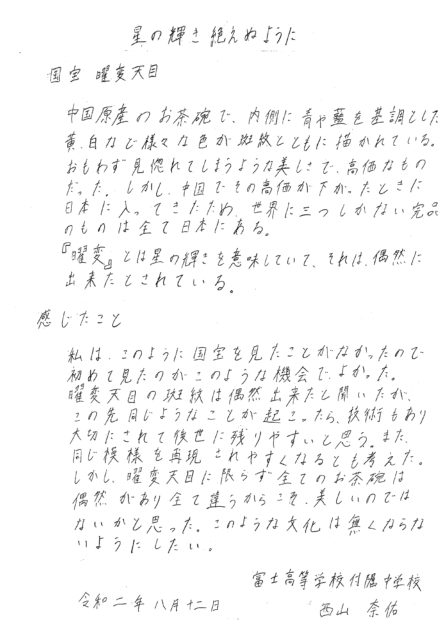 星の輝き絶えぬように
国宝 曜変天目
中国原産のお茶碗で、内側に青や藍を基調とした
黄、白など様々な色が斑紋とともに描かれている。
おもわず見惚れてしまうような美しさで、高価なもの
だった。しかし、中国でその高価が下がったときに
日本に入ってきたため、世界に三つしかない完品
のものは全て日本にある。
『曜変』とは星の輝きを意味していて、それは、偶然に
出来たとされている。
感じたこと
私は、このように国宝を見たことがなかったので
初めて見たのがこのような機会で、よかった。
曜変天目の斑紋は偶然出来たと聞いたが、
この先同じようなことが起こったら、技術もあり
大切にされて後世に残りやすいと思う。また、
同じ模様を再現されやすくなるとも考えた。
しかし、曜変天目に限らず全てのお茶碗は
偶然があり全て違うからこそ、美しいのでは
ないかと思った。このような文化は無くならな
いようにしたい。
富士高等学校付属中学校
令和二年八月十二日 西山 奈佑